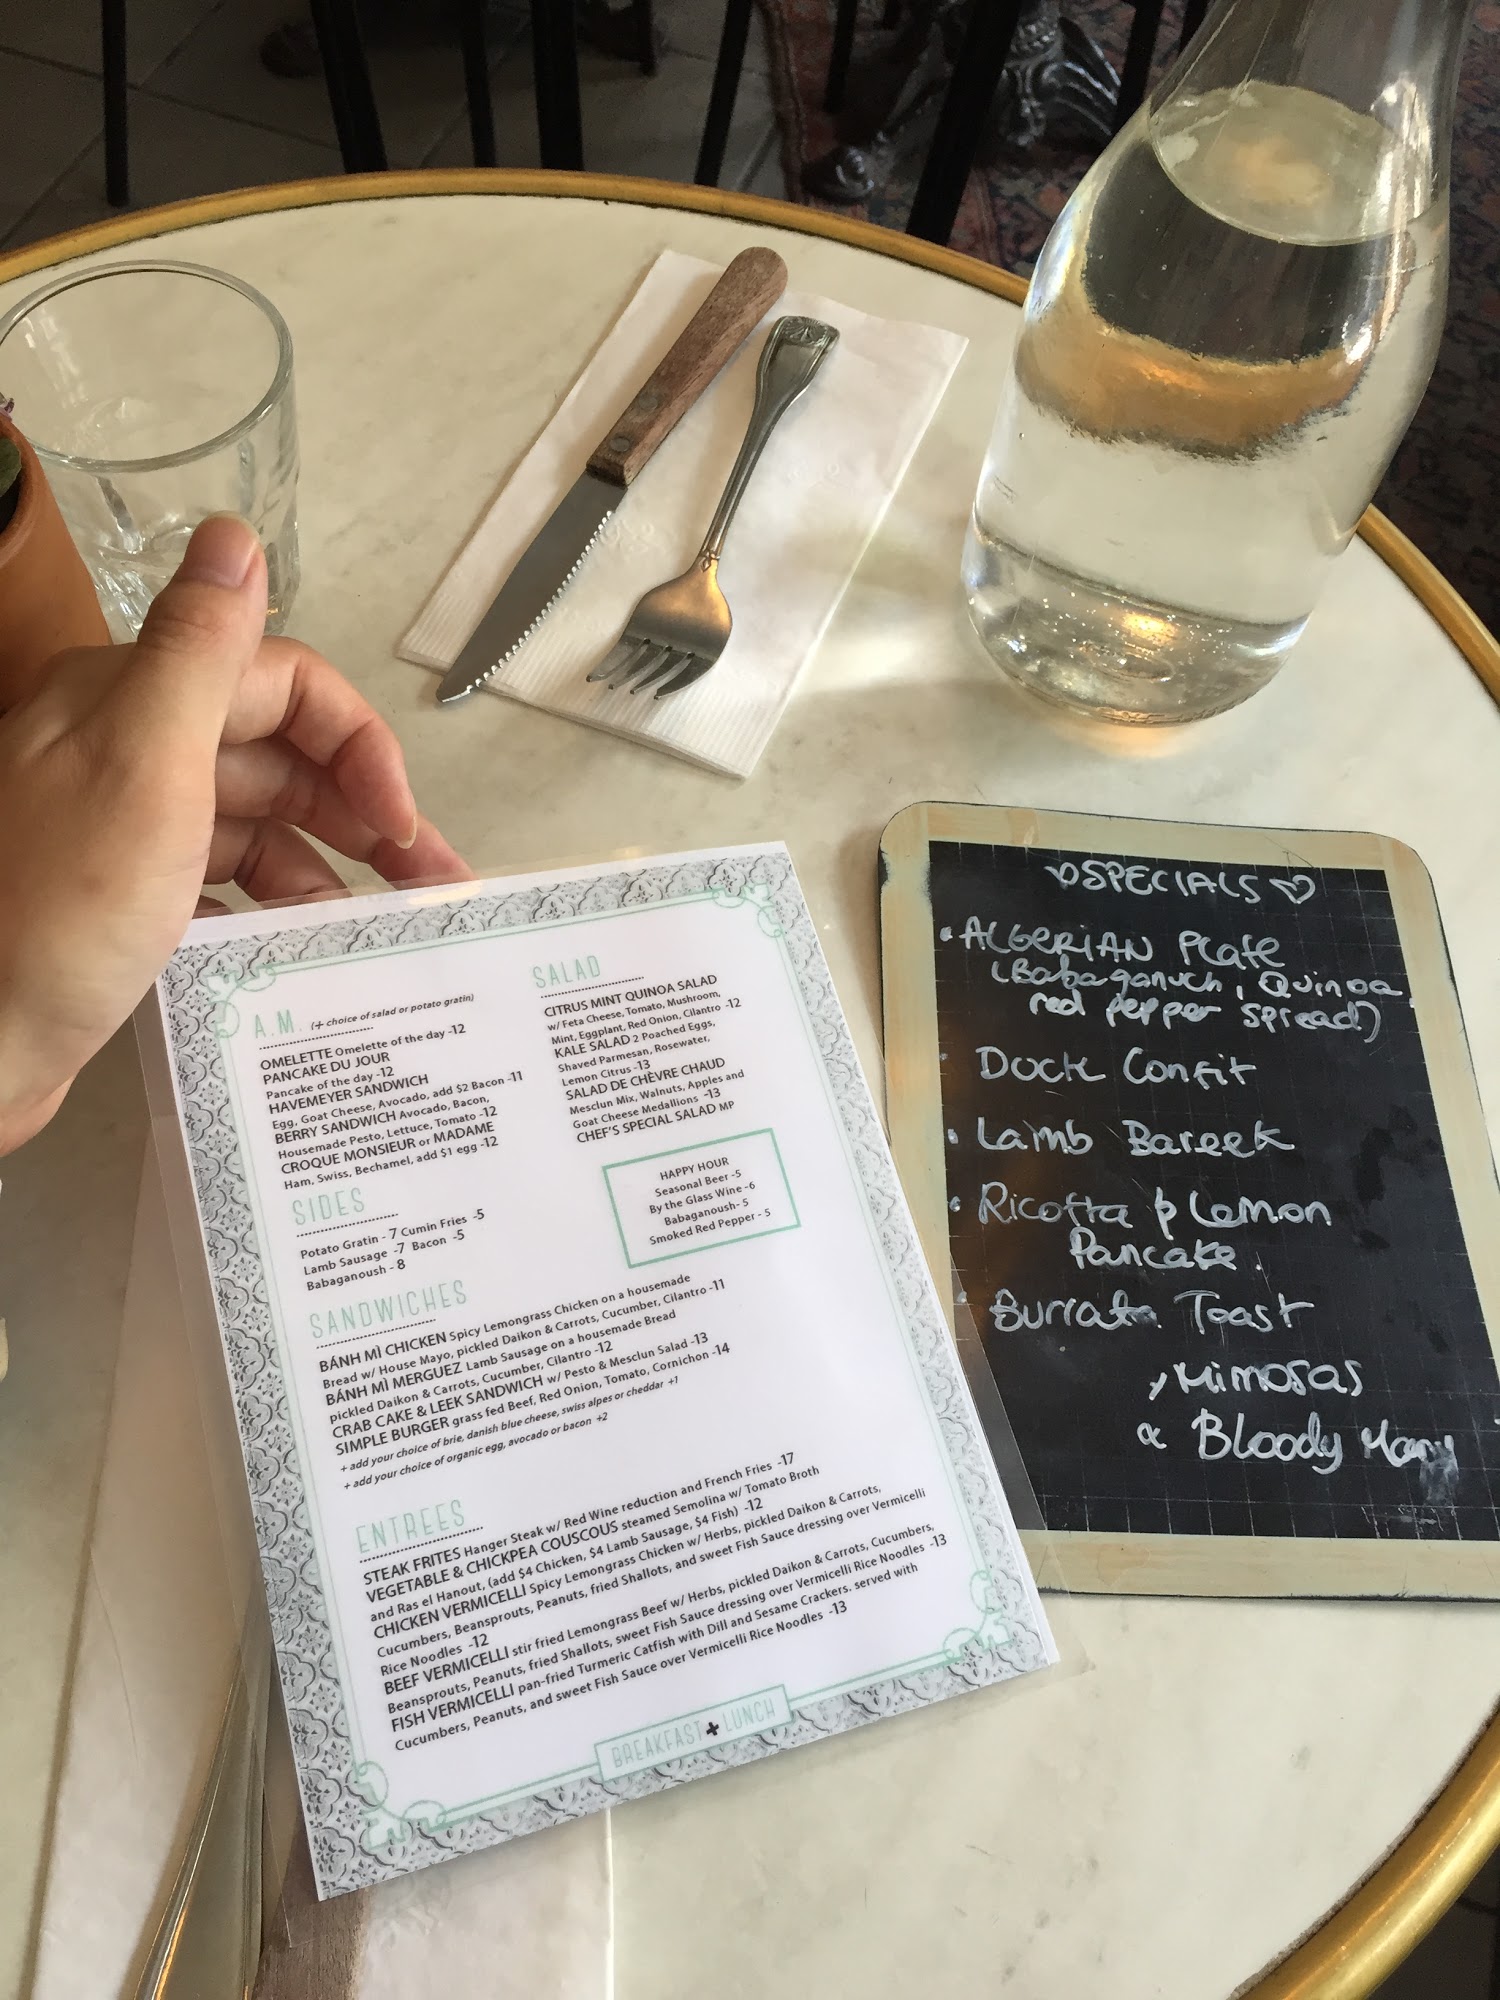 A.M. (+ choice of salad or potato gratin)
OMELETTE Omelette of the day -12
PANCAKE DU JOUR
Pancake of the day -12
HAVEMEYER SANDWICH
Egg, Goat Cheese, Avocado, add $2 Bacon -11
BERRY SANDWICH Avocado, Bacon,
Housemade Pesto, Lettuce, Tomato -12
CROQUE MONSIEUR or MADAME
Ham, Swiss, Bechamel, add $1 egg -12
SIDES
Potato Gratin - 7 Cumin Fries -5
Lamb Sausage -7 Bacon -5
Babaganoush - 8
SALAD
CITRUS MINT QUINOA SALAD
w/ Feta Cheese, Tomato, Mushroom,
Mint, Eggplant, Red Onion, Cilantro -12
KALE SALAD 2 Poached Eggs,
Shaved Parmesan, Rosewater,
Lemon Citrus -13
SALAD DE CHÈVRE CHAUD
Mesclun Mix, Walnuts, Apples and
Goat Cheese Medallions -13
CHEF'S SPECIAL SALAD MP
HAPPY HOUR
Seasonal Beer -5
By the Glass Wine -6
Babaganoush- 5
Smoked Red Pepper - 5
SANDWICHES
BÁNH MÌ CHICKEN Spicy Lemongrass Chicken on a housemade
Bread w/ House Mayo, pickled Daikon & Carrots, Cucumber, Cilantro -11
BÁNH MÌ MERGUEZ Lamb Sausage on a housemade Bread
pickled Daikon & Carrots, Cucumber, Cilantro -12
CRAB CAKE & LEEK SANDWICH w/ Pesto & Mesclun Salad -13
SIMPLE BURGER grass fed Beef, Red Onion, Tomato, Cornichon -14
+ add your choice of brie, danish blue cheese, swiss alpes or cheddar +1
+ add your choice of organic egg, avocado or bacon +2
ENTREES
STEAK FRITES Hanger Steak w/ Red Wine reduction and French Fries -17
VEGETABLE & CHICKPEA COUSCOUS steamed Semolina w/ Tomato Broth
and Ras el Hanout, (add $4 Chicken, $4 Lamb Sausage, $4 Fish) -12
CHICKEN VERMICELLI Spicy Lemongrass Chicken w/ Herbs, pickled Daikon & Carrots,
Cucumbers, Beansprouts, Peanuts, fried Shallots, and sweet Fish Sauce dressing over Vermicelli
Rice Noodles -12
BEEF VERMICELLI stir fried Lemongrass Beef w/ Herbs, pickled Daikon & Carrots, Cucumbers,
Beansprouts, Peanuts, fried Shallots, sweet Fish Sauce dressing over Vermicelli Rice Noodles -13
FISH VERMICELLI pan-fried Turmeric Catfish with Dill and Sesame Crackers. served with
Cucumbers, Peanuts, and sweet Fish Sauce over Vermicelli Rice Noodles -13
BREAKFAST + LUNCH
♡SPECIALS♡
• ALGERIAN Plate
(Babaganuch, Quinoa,
red pepper spread)
• Duck Confit
• Lamb Bareek
• Ricotta & Lemon
Pancake.
• Burrata Toast
Mimosas
& Bloody Mary